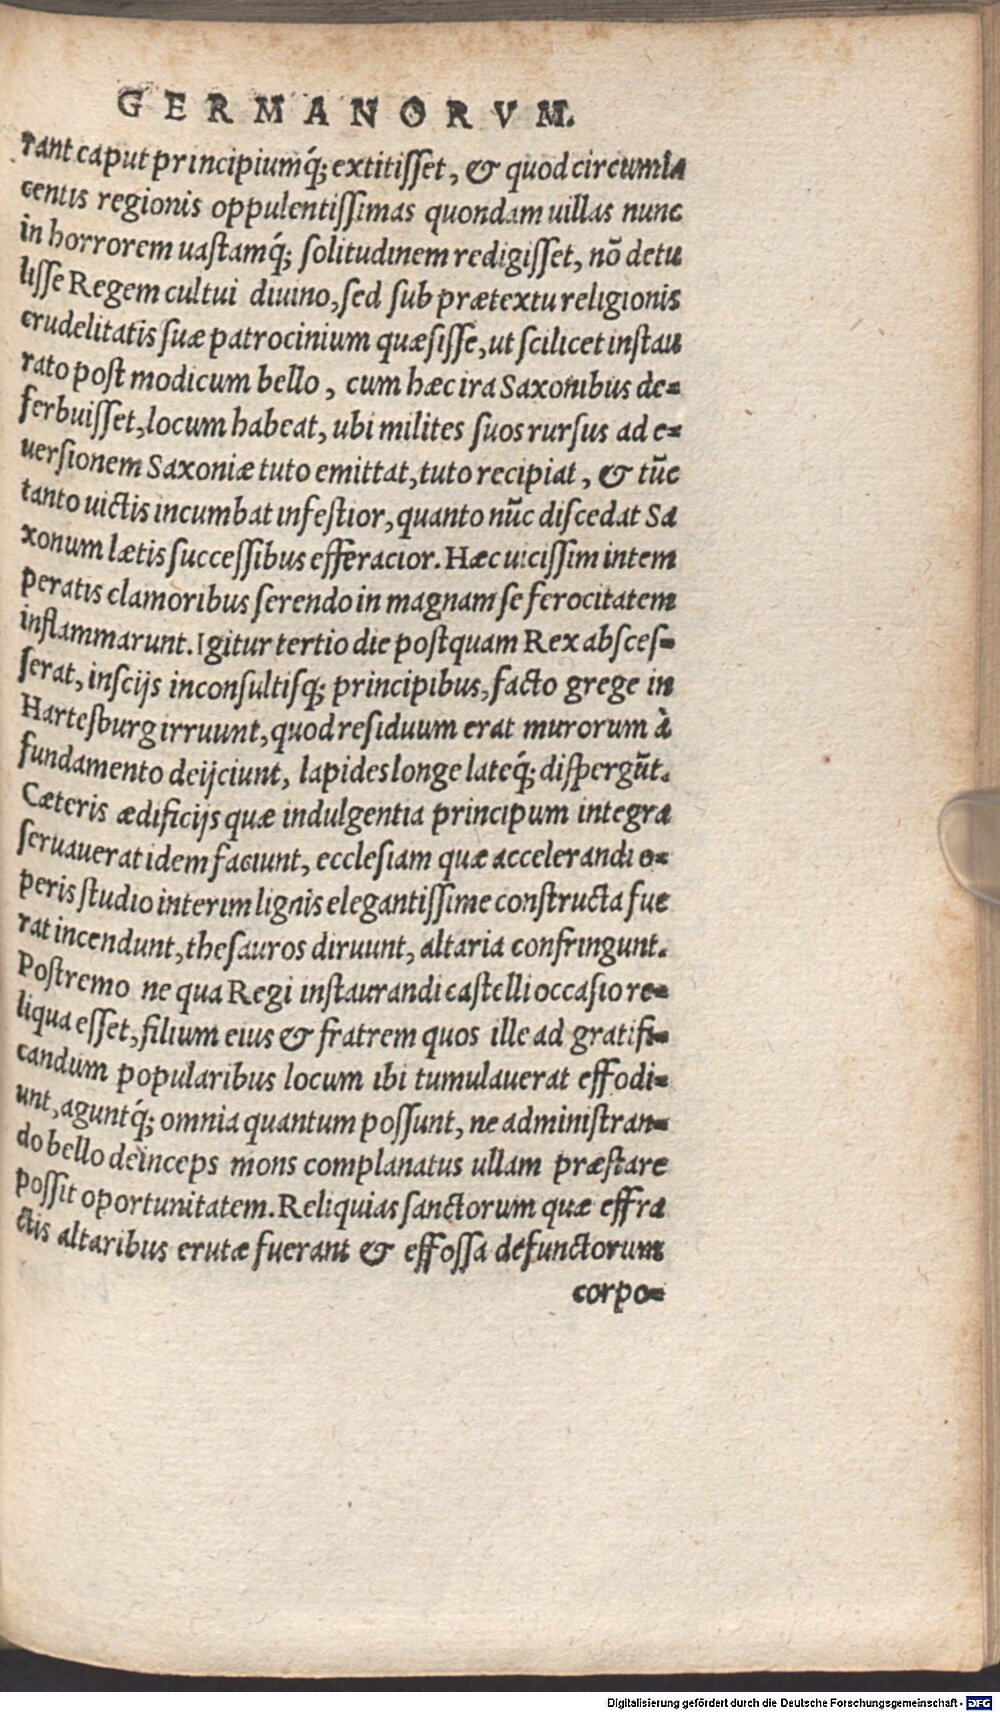 GERMANORVM.
rant caput principiumq́; extitisset, & quod circumia
centis regionis oppulentissimas quondam uillas nunc
in horrorem uastamq́; solitudinem redigisset, nõ detu
lisse Regem cultui diuino, sed sub prætextu religionis
crudelitatis suæ patrocinium quæsisse, ut scilicet instau
rato post modicum bello, cum hæc ira Saxonibus de-
ferbuisset, locum habeat, ubi milites suos rursus ad e-
uersionem Saxoniæ tuto emittat, tuto recipiat, & tũc
tanto uictis incumbat infestior, quanto nũc discedat Sa
xonum lætis successibus efferacior. Hæc uicissim intem
peratis clamoribus serendo in magnam se ferocitatem
inflammarunt. Igitur tertio die postquam Rex absces-
serat, inscijs inconsultisq; principibus, facto grege in
Hartesburg irruunt, quod residuum erat murorum à
fundamento deijciunt, lapides longe lateq́; dispergũt.
Cæteris ædificijs quæ indulgentia principum integra
seruauerat idem faciunt, ecclesiam quæ accelerandi o-
peris studio interim lignis elegantissime constructa fue
rat incendunt, thesauros diruunt, altaria confringunt.
Postremo ne qua Regi instaurandi castelli occasio re-
liqua esset, filium eius & fratrem quos ille ad gratifi-
candum popularibus locum ibi tumulauerat effodi-
unt, aguntq́; omnia quantum possunt, ne administran-
do bello deinceps mons complanatus ullam præstare
possit oportunitatem. Reliquias sanctorum quæ effra
ctis altaribus erutæ fuerant & effossa defunctorum
corpo-
Digitalisierung gefördert durch die Deutsche Forschungsgemeinschaft - DFG